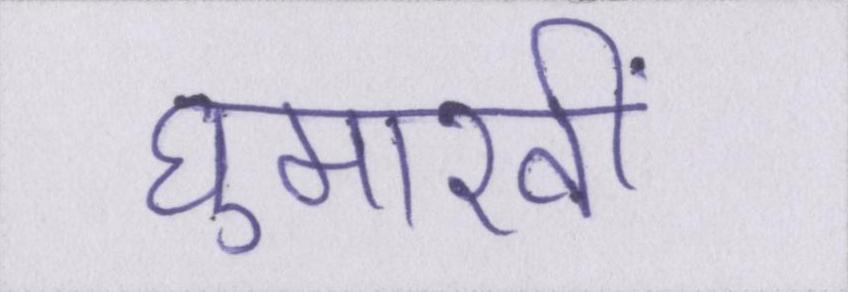 घुमारवीं